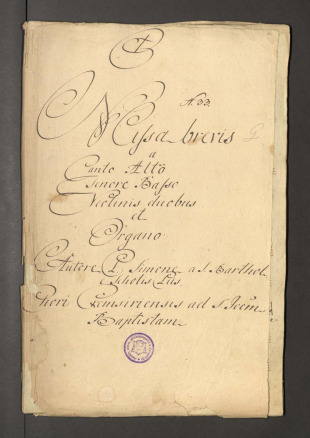 N. 33.
Missa brevis
a
Canto Alto
Tenore Basso
Violinis duobus
et
Organo
Autore P. Simone a S. Barthol
Scholis Piis
Chori Cremsiriensis ad S. Joēm
Baptistam